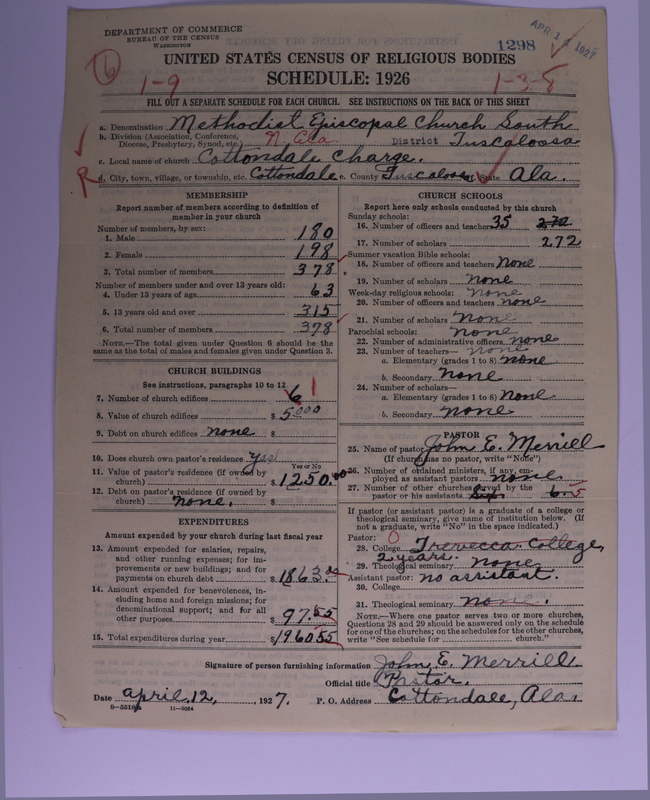 DEPARTMENT OF COMMERCE
BUREAU OF THE CENSUS
WASHINGTON
1298
APR 1 1927
UNITED STATES CENSUS OF RELIGIOUS BODIES
SCHEDULE: 1926
6
1-9
1-3-8
FILL OUT A SEPARATE SCHEDULE FOR EACH CHURCH. SEE INSTRUCTIONS ON THE BACK OF THIS SHEET
a. Denomination Methodist Episcopal Church South
b. Division (Association, Conference, Diocese, Presbytery, Synod, etc.) N. Ala. District Tuscaloosa
c. Local name of church Cottondale Charge.
R
d. City, town, village, or township, etc. Cottondale e. County Tuscaloosa f. State Ala.
MEMBERSHIP
Report number of members according to definition of
member in your church
Number of members, by sex:
1. Male 180
2. Female 198
3. Total number of members 378
Number of members under and over 13 years old:
4. Under 13 years of age 63
5. 13 years old and over 315
6. Total number of members 378
NOTE.—The total given under Question 6 should be the
same as the total of males and females given under Question 3.
CHURCH BUILDINGS
See instructions, paragraphs 10 to 12
7. Number of church edifices 6 1
8. Value of church edifices $ 5000
9. Debt on church edifices none $
10. Does church own pastor's residence yes
Yes or No
11. Value of pastor's residence (if owned by
church) $ 1250.00
12. Debt on pastor's residence (if owned by
church) none. $
EXPENDITURES
Amount expended by your church during last fiscal year
13. Amount expended for salaries, repairs,
and other running expenses; for im-
provements or new building; and for
payments on church debt $ 1863.00
14. Amount expended for benevolences, in-
cluding home and foreign missions; for
denominational support; and for all
other purposes $ 97.55
15. Total expenditures during year $ 1960.55
CHURCH SCHOOLS
Report here only schools conducted by this church
Sunday schools:
16. Number of officers and teachers 35 272
17. Number of scholars 272
Summer vacation Bible schools:
18. Number of officers and teachers none
19. Number of scholars none
Week-day religious schools: none
20. Number of officers and teachers none
21. Number of scholars none
Parochial schools: none
22. Number of administrative officers none
23. Number of teachers— none
a. Elementary (grades 1 to 8) none
b. Secondary none
24. Number of scholars—
a. Elementary (grades 1 to 8) none
b. Secondary none
PASTOR
25. Name of pastor John E. Merrill
(If church has no pastor, write "None")
26. Number of ordained ministers, if any, em-
ployed as assistant pastors none
27. Number of other churches served by the
pastor or his assistants 6. 5
If pastor (or assistant pastor) is a graduate of a college or
theological seminary, give name of institution below. (If
not a graduate, write "No" in the space indicated.)
Pastor: 0
28. College Trevecca College,
2 years.
29. Theological seminary none
Assistant pastor: no assistant.
30. College
31. Theological seminary none.
NOTE.—Where one pastor serves two or more churches,
Questions 28 and 29 should be answered only on the schedule
for one of the churches; on the schedules for the other churches,
write "See schedule for church."
Signature of person furnishing information John E. Merrill
Official title Pastor.
Date April, 12, 1927. P. O. Address Cottondale, Ala.
11-9064